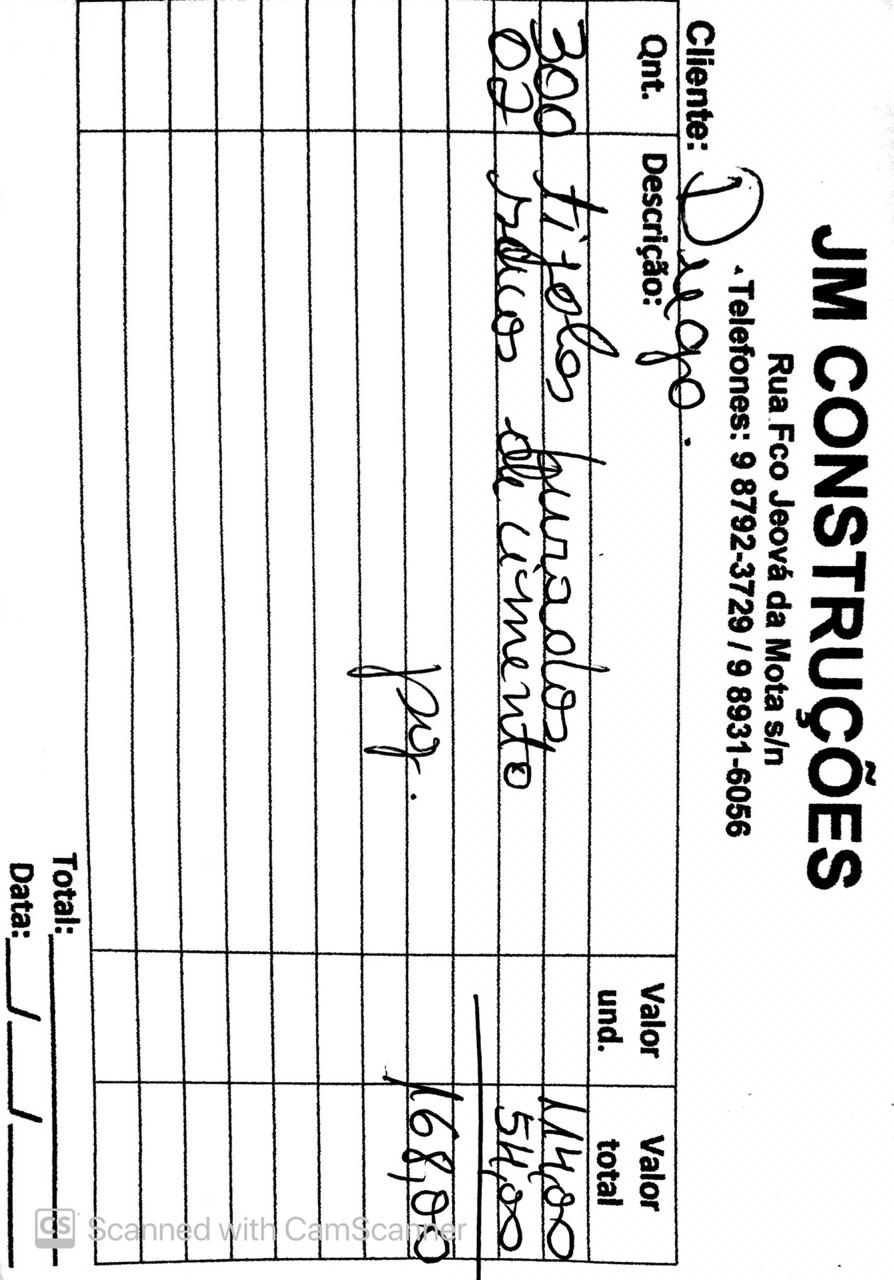 JM CONSTRUÇÕES
Rua Fco Jeová da Mota s/n
Telefones: 9 8792-3729 / 9 8931-6056
Cliente: Diego.
Qnt. Descrição: Valor und. Valor total
300 tijolos furados 114,00
02 sacos de cimento 54,00
168,00
Total:
Data: / /
CS Scanned with CamScanner